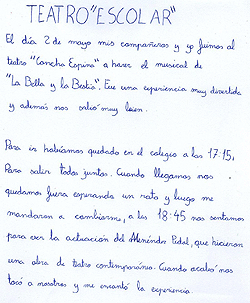 TEATRO "ESCOLAR"
El día 2 de mayo mis compañeros y yo fuimos al
teatro "Concha Espina" a hacer el musical de
"La Bella y la Bestia". Fue una experiencia muy divertida
y además nos salió muy bien.
Para ir habíamos quedado en el colegio a las 17:15,
Para salir todos juntos. Cuando llegamos nos
quedamos fuera esperando un rato y luego me
mandaron a cambiarme, a las 18:45 nos sentamos
para ver la actuación del Menéndez Pidal, que hicieron
una obra de teatro contemporáneo. Cuando acabó nos
tocó a nosotros y me encantó la experiencia.